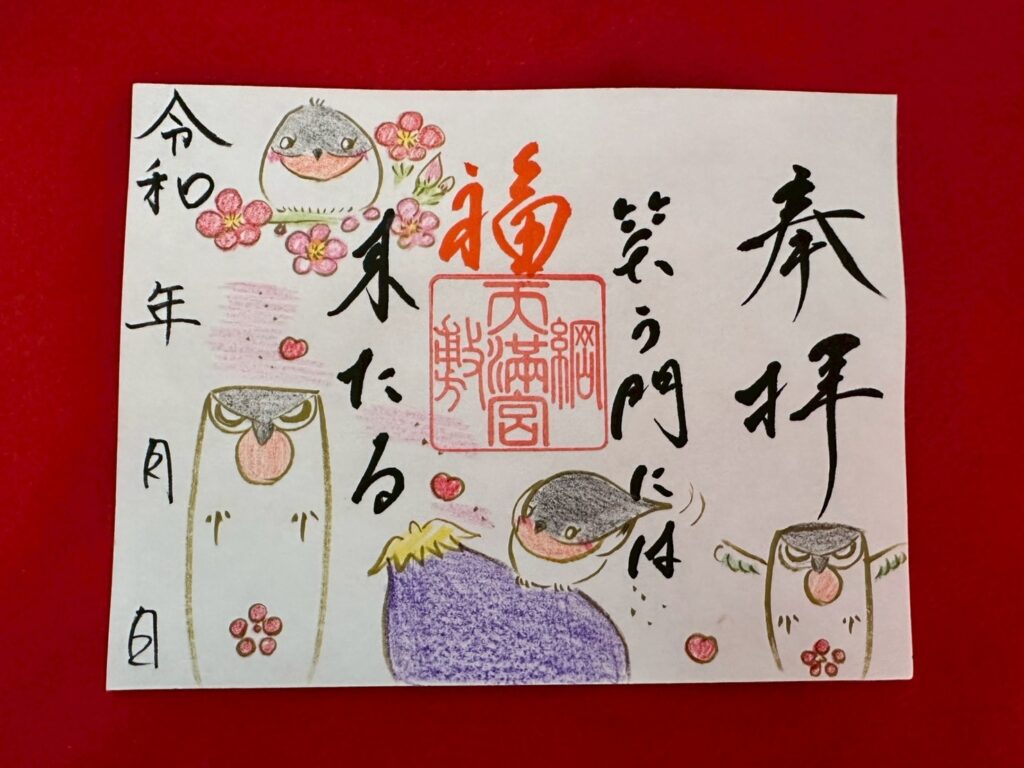 奉拝
笑う門には
福
綱敷天満宮
来たる
令和 年 月 日